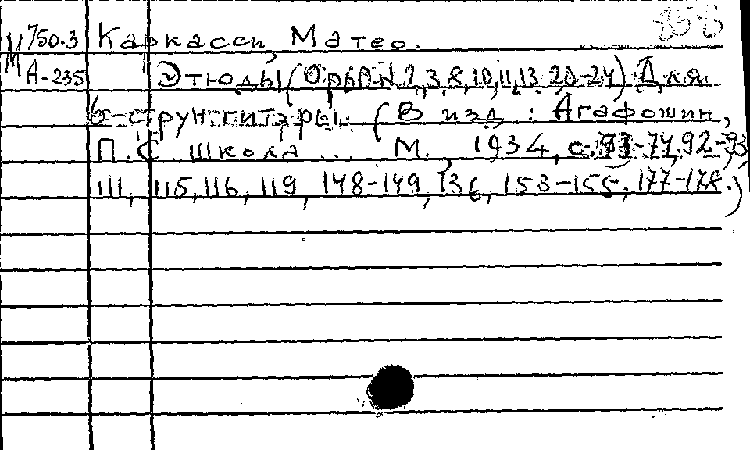 858
М 750.3 Каркасси, Матео.
А-235 Этюды (Ор. 2,3,8,10,11,13,20-24) Для
6-струн. гитары. (В изд.: Агафошин,
П.С. Школа... М., 1934, с. 73-74, 92-93,
111, 115, 116, 119, 148-149, 136, 153-155, 177-178.)